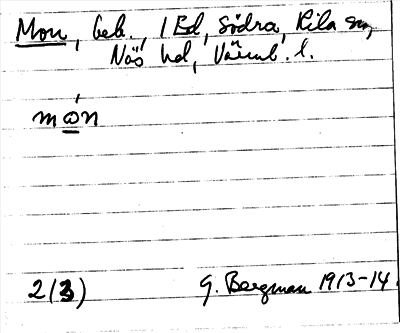 Mon, beb., 1 Ed, Södra, Kila sn,
Näs hd, Värml. l.
mωn
2(3) G. Bergman 1913-14.